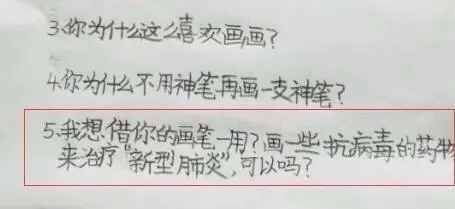 3.你为什么这么喜欢画画?
4.你为什么不用神笔再画一支神笔?
5.我想借你的画笔一用?画一些抗病毒的药物
来治疗“新型肺炎”,可以吗?